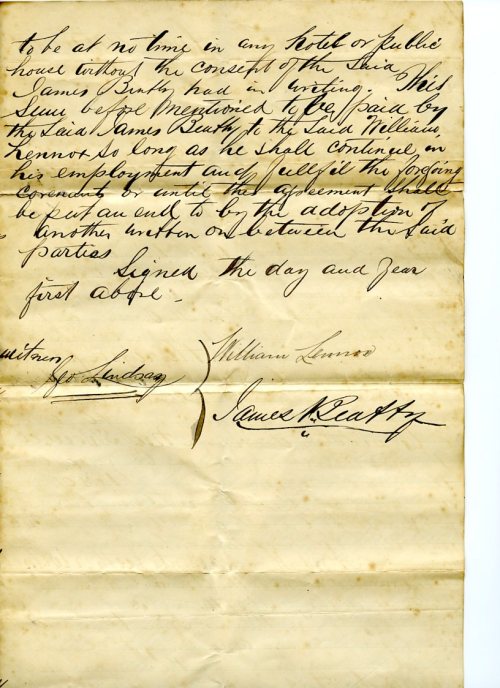 to be at no time in any hotel or public
house without the consept of the said
James Beatty had in writing. This
Sum before mentioned to be paid by
the said James Beatty to the said William
Lennox so long as he shall continue in
his employment and fullfil the forgoing
covenents or until this agreement shall
be put an end to by the adoption of
another written on between the said
parties
Signed the day and year
first above.
witness
Geo Lindsay
William Lennox
James Beatty